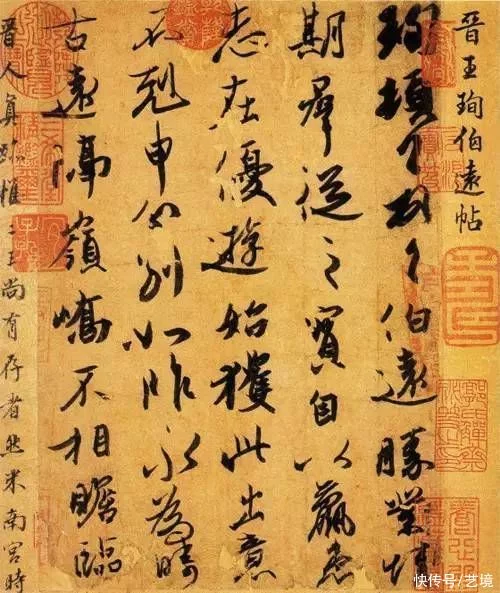 晉王珣伯遠帖
珣頓首頓首伯遠勝業情
期羣從之寶自以羸患
志在優遊始獲此出意
不剋申分別如昨永為疇
古遠隔嶺嶠不相瞻臨
晉人真跡惟二王尚有存者然米南宮時
快传号/艺境